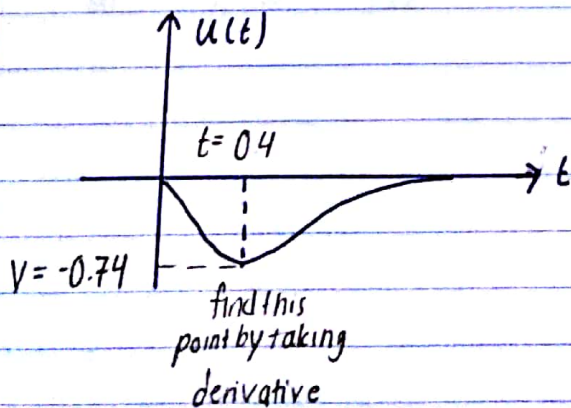 u(t)
t = 04
t
V = -0.74
find this
point by taking
derivative